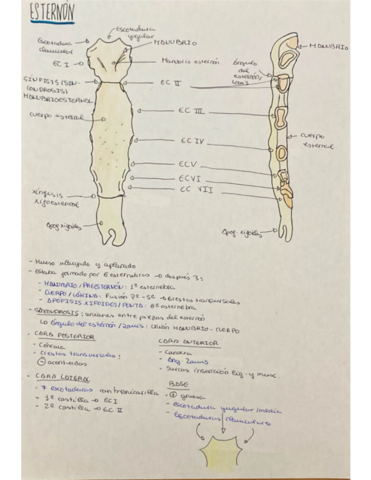 ESTERNÓN
Escotadura yugular
Escotadura clavicular
MANUBRIO
MANUBRIO
EC I
Manubrio esternón
Ángulo del esternón/
EC II
MANUBRIOESTERNAL
cuerpo esternal
EC III
EC IV
cuerpo esternal
EC V
EC VI
EC VII
xifoesternal
Apóf xifoides
Apóf xifoides
- Hueso alargado y aplanado
- Estaba formado por 6 esternebras → después 3:
- MANUBRIO/PREESTERNÓN: 1ª esternebra
- CUERPO/LÁMINA: fusión 2ª-5ª → crestas transversales
- APÓFISIS XIFOIDES/PUNTA: 6ª esternebra
- SINCONDROSIS: uniones entre piezas del esternón
↳ Ángulo del esternón/Louis: unión MANUBRIO-CUERPO
- CARA POSTERIOR
- Cóncava
- Crestas transversales:
⊖ acentuadas
CARA ANTERIOR
- Convexa
- Áng Louis
- Surcos inserción lig. y musc
- CARA LATERAL
- 7 escotaduras
- 1ª costilla → EC I
- 2ª costilla → EC II
BASE
- ⊕ gruesa
- escotadura yugular media
- Escotaduras claviculares